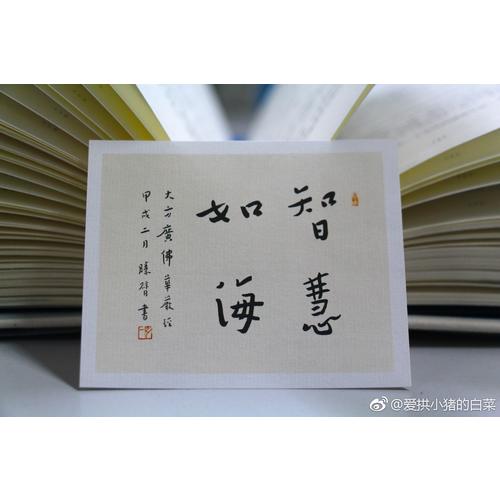 智慧
如海
大方廣佛華嚴經
甲戌二月隆醇書
@爱拱小猪的白菜